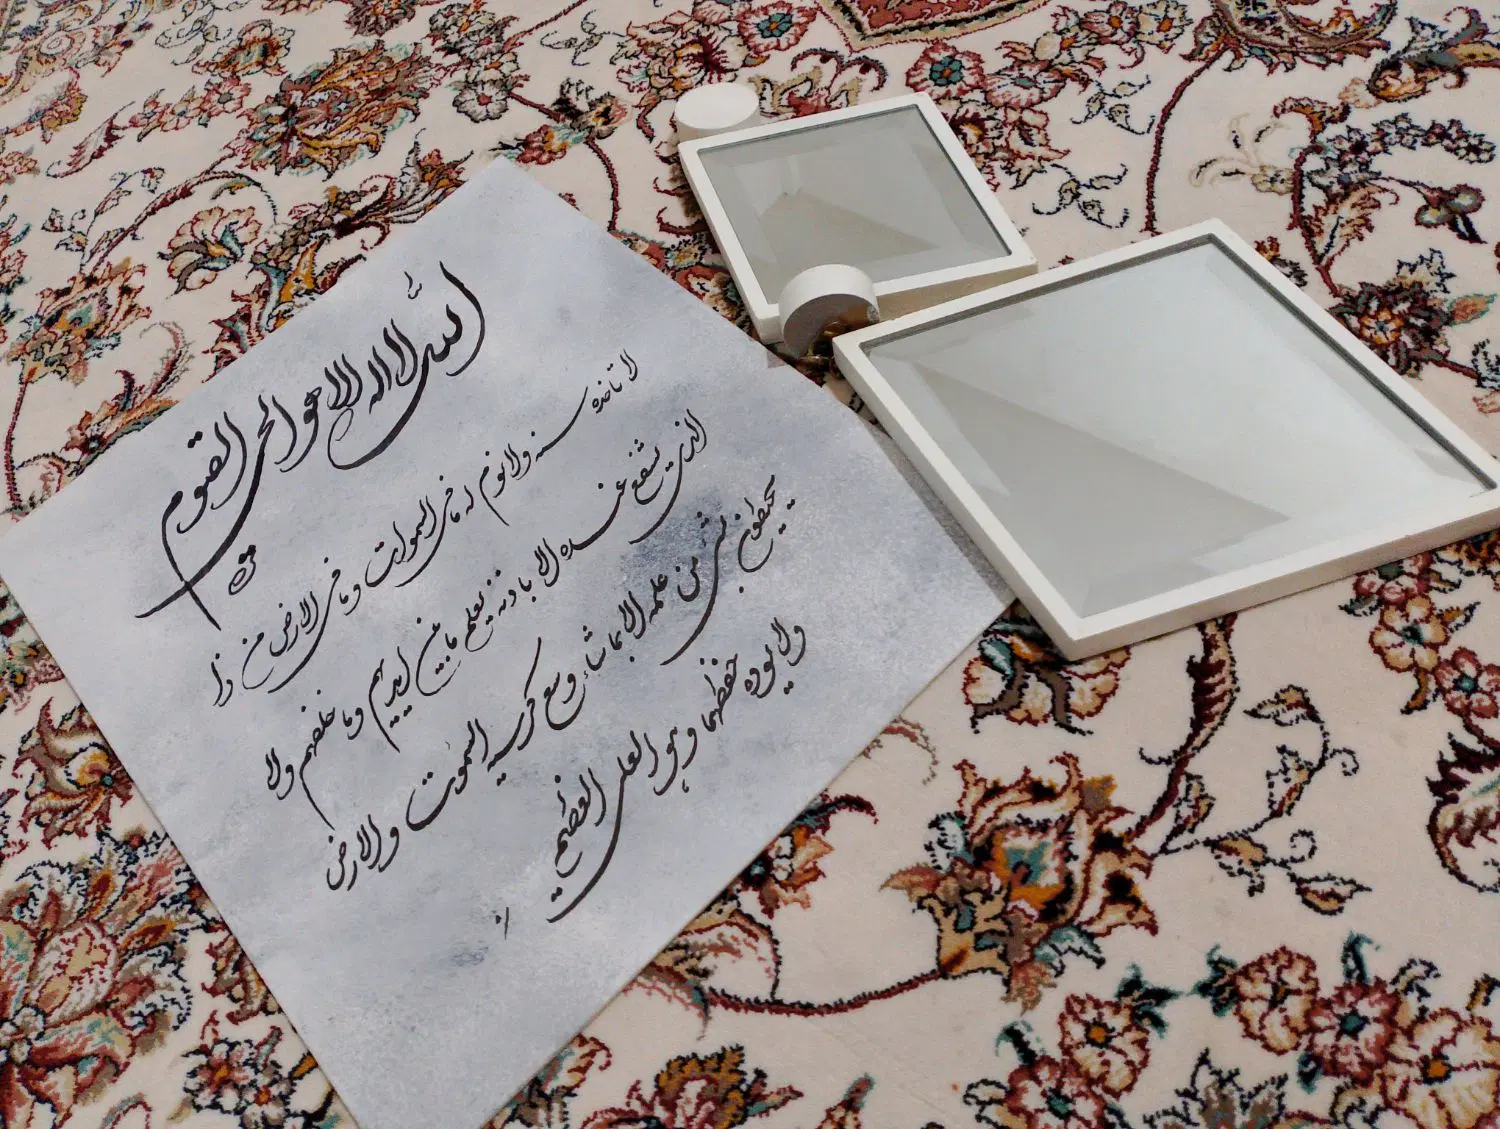 الله لا اله الا هو الحی القیوم
لا تاخذه سنه ولا نوم له ما فی السموات وما فی الارض من ذا
الذی یشفع عنده الا باذنه یعلم ما بین ایدیهم وما خلفهم ولا
یحیطون بشیء من علمه الا بما شاء وسع کرسیه السموت والارض
ولا یوده حفظهما وهو العلی العظیم